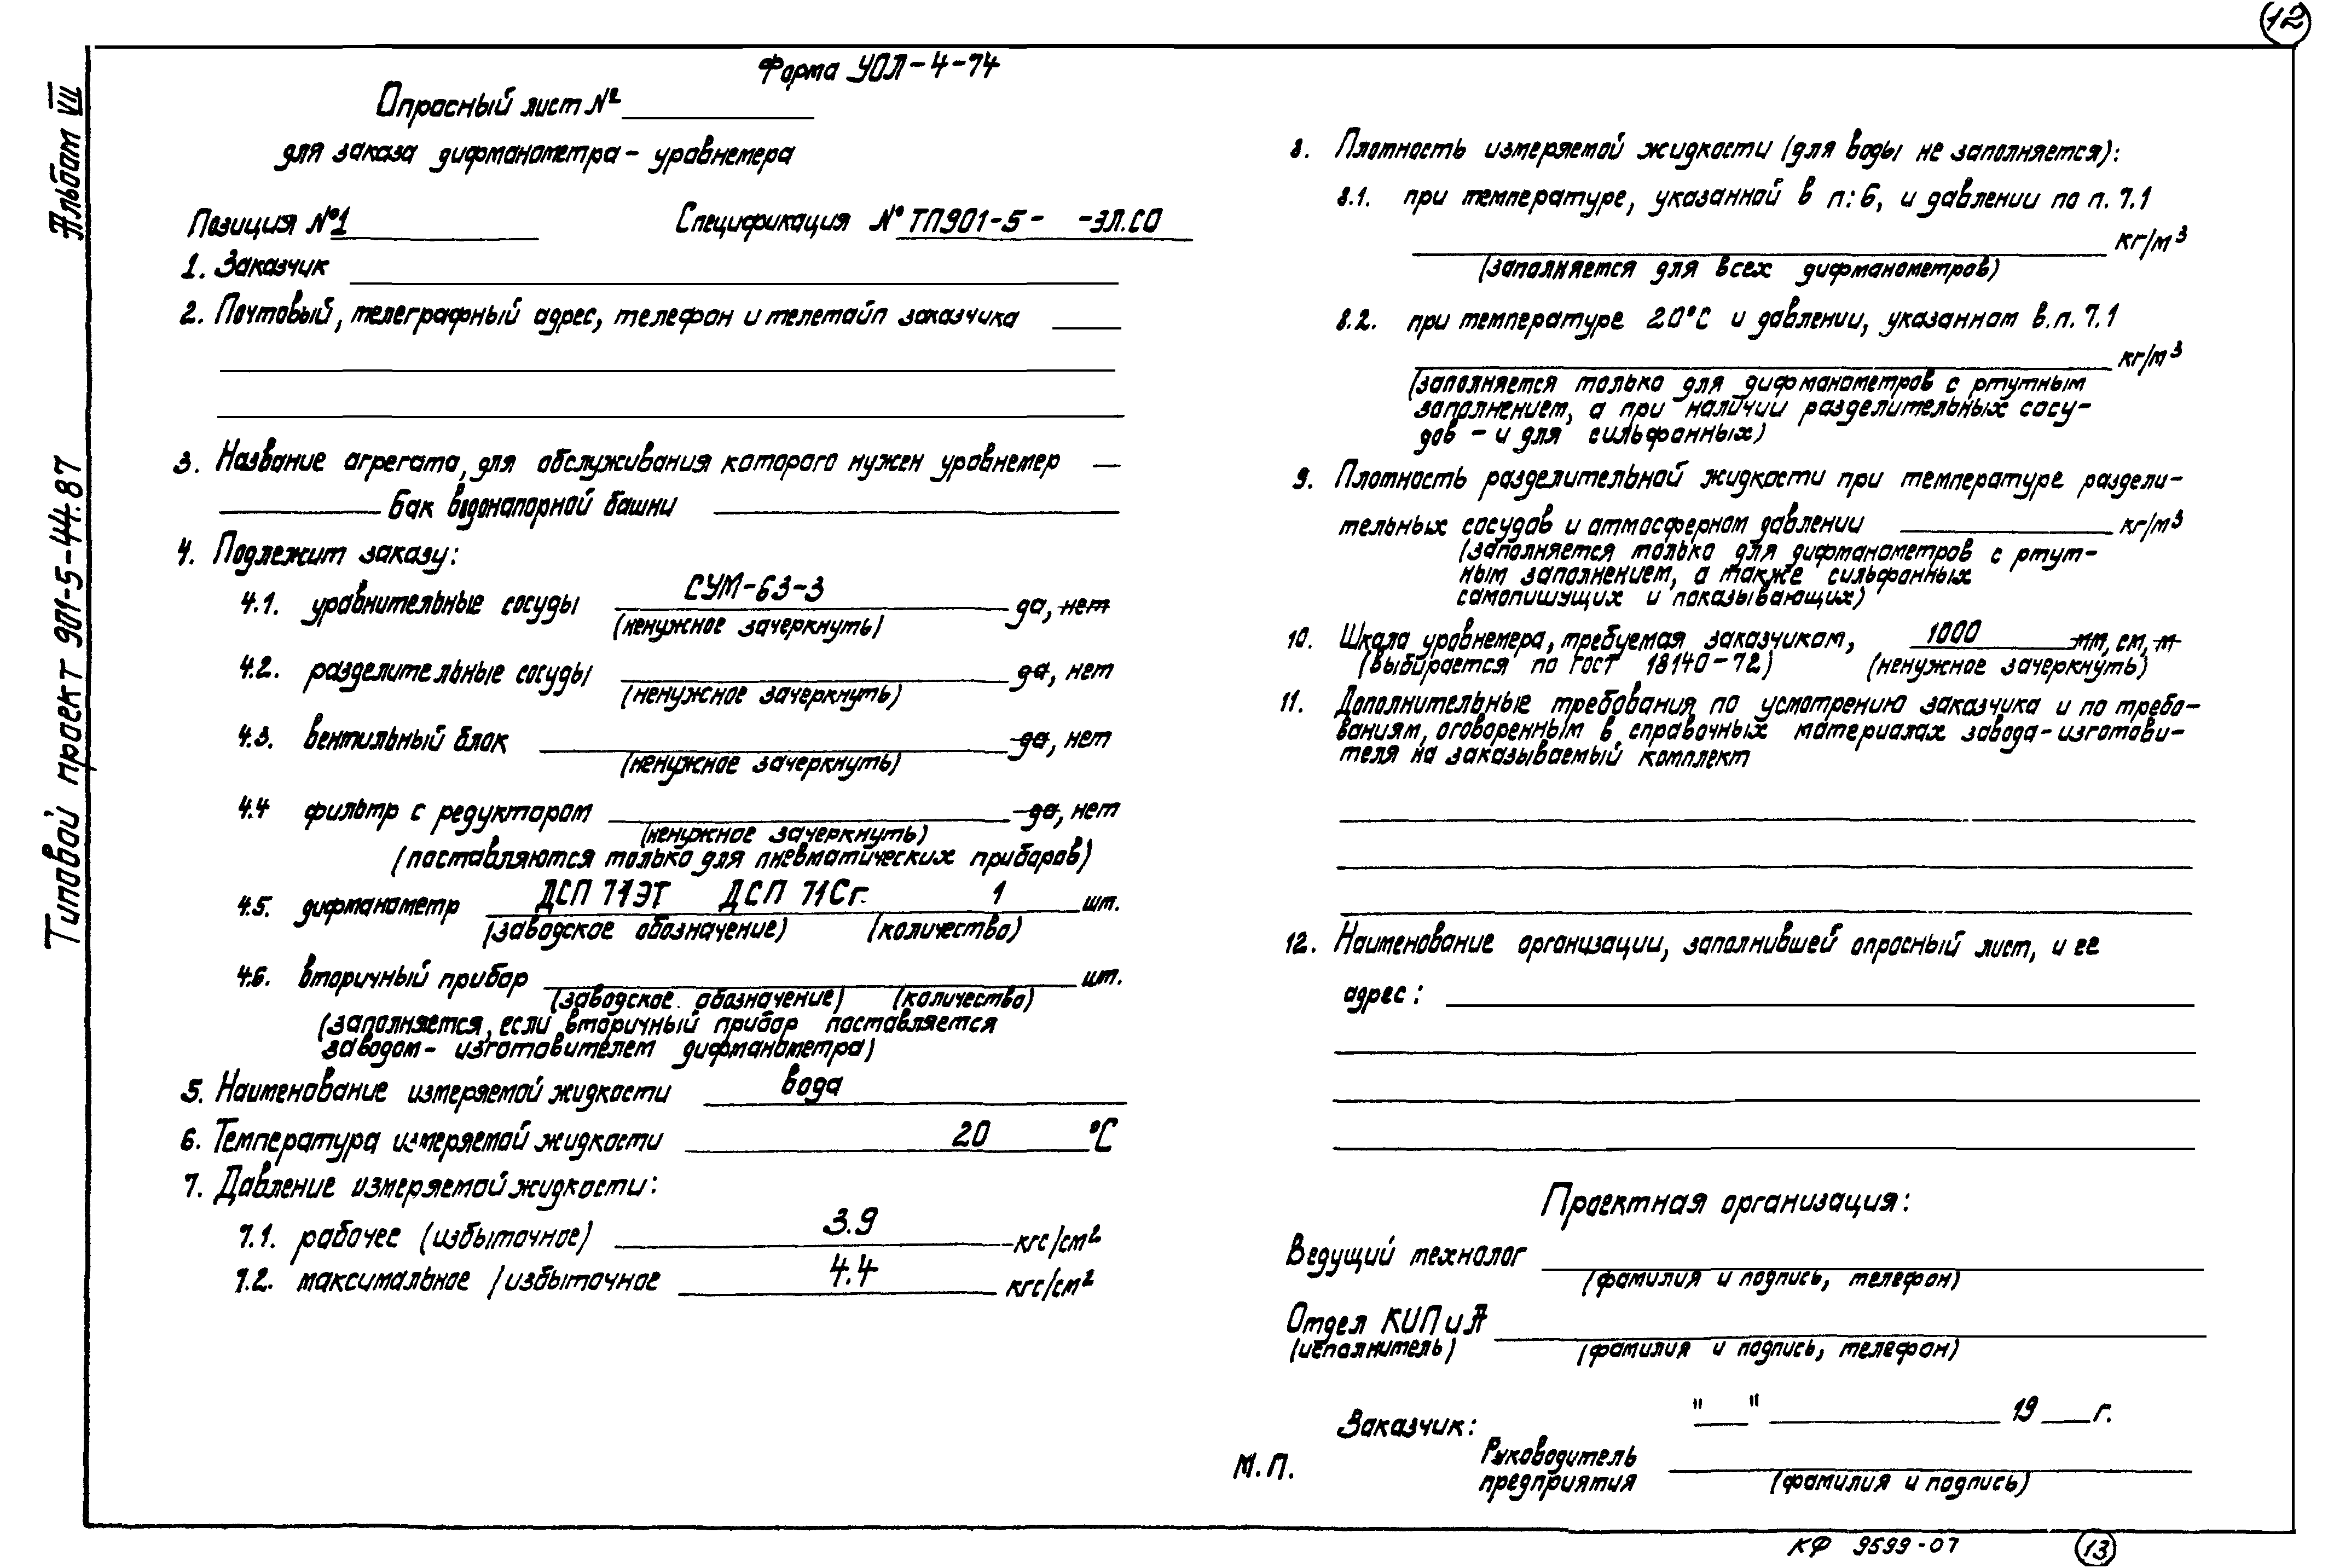 12
Альбом VII
Типовой проект 901-5-44.87
Форма УОЛ-4-74
Опросный лист №
для заказа дифманометра - уровнемера
Позиция №1 Спецификация № ТП901-5- -ЭЛ.СО
1. Заказчик
2. Почтовый, телеграфный адрес, телефон и телетайп заказчика
3. Название агрегата, для обслуживания которого нужен уровнемер
Бак водонапорной башни
4. Подлежит заказу:
4.1. уравнительные сосуды СУМ-63-3 да, нет
(ненужное зачеркнуть)
4.2. разделительные сосуды да, нет
(ненужное зачеркнуть)
4.3. вентильный блок да, нет
(ненужное зачеркнуть)
4.4 фильтр с редуктором да, нет
(ненужное зачеркнуть)
(поставляются только для пневматических приборов)
4.5. дифманометр ДСП 71ЭТ ДСП 71Сг. 1 шт.
(заводское обозначение) (количество)
4.6. вторичный прибор шт.
(заводское обозначение) (количество)
(заполняется, если вторичный прибор поставляется
заводом- изготовителем дифманометра)
5. Наименование измеряемой жидкости вода
6. Температура измеряемой жидкости 20 °С
7. Давление измеряемой жидкости:
7.1. рабочее (избыточное) 3.9 кгс/см²
7.2. максимальное /избыточное 4.4 кгс/см²
8. Плотность измеряемой жидкости (для воды не заполняется):
8.1. при температуре, указанной в п: 6, и давлении по п. 7.1
кг/м³
(заполняется для всех дифманометров)
8.2. при температуре 20°С и давлении, указанном в.п. 7.1
кг/м³
(заполняется только для дифманометров с ртутным
заполнением, а при наличии разделительных сосу-
дов - и для сильфонных)
9. Плотность разделительной жидкости при температуре раздели-
тельных сосудов и атмосферном давлении кг/м³
(заполняется только для дифманометров с ртут-
ным заполнением, а также сильфонных
самопишущих и показывающих)
10. Шкала уровнемера, требуемая заказчиком, 1000 мм, см, м
(выбирается по ГОСТ 18140-72) (ненужное зачеркнуть)
11. Дополнительные требования по усмотрению заказчика и по требо-
ваниям, оговоренным в справочных материалах завода-изготови-
теля на заказываемый комплект
12. Наименование организации, заполнившей опросный лист, и ее
адрес:
Проектная организация:
Ведущий технолог
(фамилия и подпись, телефон)
Отдел КИП и А
(исполнитель) (фамилия и подпись, телефон)
"__" 19 г.
Заказчик:
М.П. Руководитель
предприятия (фамилия и подпись)
КФ 9599-07 13